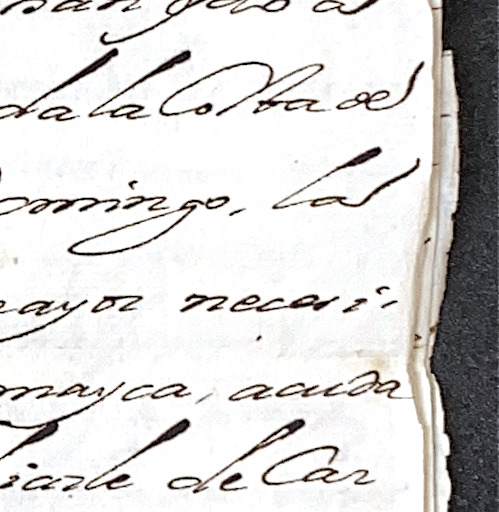 da la Costa del
omingo, las
mayor necesi-
mayca, acuda
iarle de Car